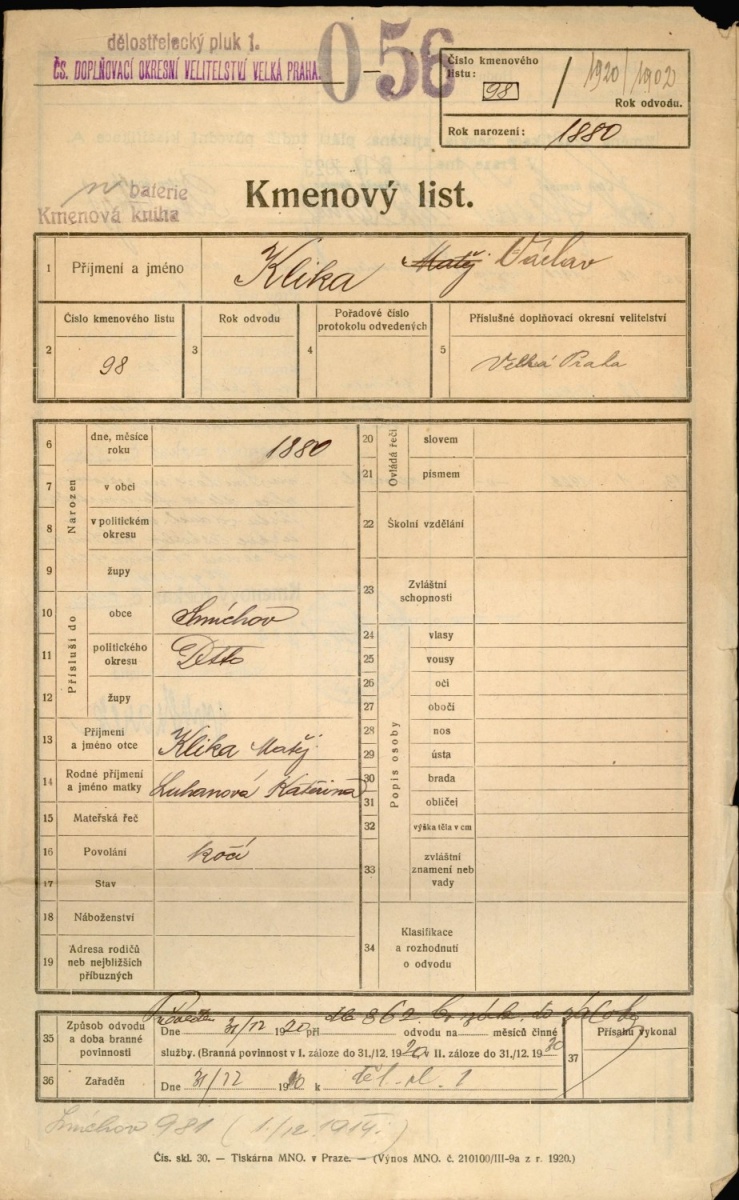 dělostřelecký pluk 1.
ČS. DOPLŇOVACÍ OKRESNÍ VELITELSTVÍ VELKÁ PRAHA.
056
Číslo kmenového
listu:
98 / 1920/1902
Rok odvodu.
Rok narození: 1880
baterie
Kmenová kniha
Kmenový list.
1 Příjmení a jméno Klika Matěj Václav
2 Číslo kmenového listu 98
3 Rok odvodu
4 Pořadové číslo
protokolu odvedených
5 Příslušné doplňovací okresní velitelství
Velká Praha
Narozen
6 dne, měsíce
roku 1880
7 v obci
8 v politickém
okresu
9 župy
Přísluší do
10 obce Smíchov
11 politického
okresu Detto
12 župy
13 Příjmení
a jméno otce Klika Matěj
14 Rodné příjmení
a jméno matky Luhanová Kateřina
15 Mateřská řeč
16 Povolání kočí
17 Stav
18 Náboženství
19 Adresa rodičů
neb nejbližších
příbuzných
Ovládá řečí
20 slovem
21 písmem
22 Školní vzdělání
23 Zvláštní
schopnosti
Popis osoby
24 vlasy
25 vousy
26 oči
27 obočí
28 nos
29 ústa
30 brada
31 obličej
32 výška těla v cm
33 zvláštní
znamení neb
vady
34 Klasifikace
a rozhodnutí
o odvodu
35 Způsob odvodu
a doba branné
povinnosti
dle 862 do zálohy
Dne 31/12 1920 při odvodu na měsíců činné
služby. (Branná povinnost v I. záloze do 31./12. 1920 v II. záloze do 31./12. 1930
36 Zařaděn Dne 31/12 1920 k děl. pl. 1
37 Přísahu vykonal
Smíchov 981 (1./12. 1914.)
Čís. skl. 30. — Tiskárna MNO. v Praze. — (Výnos MNO. č. 210100/III-9a z r. 1920.)